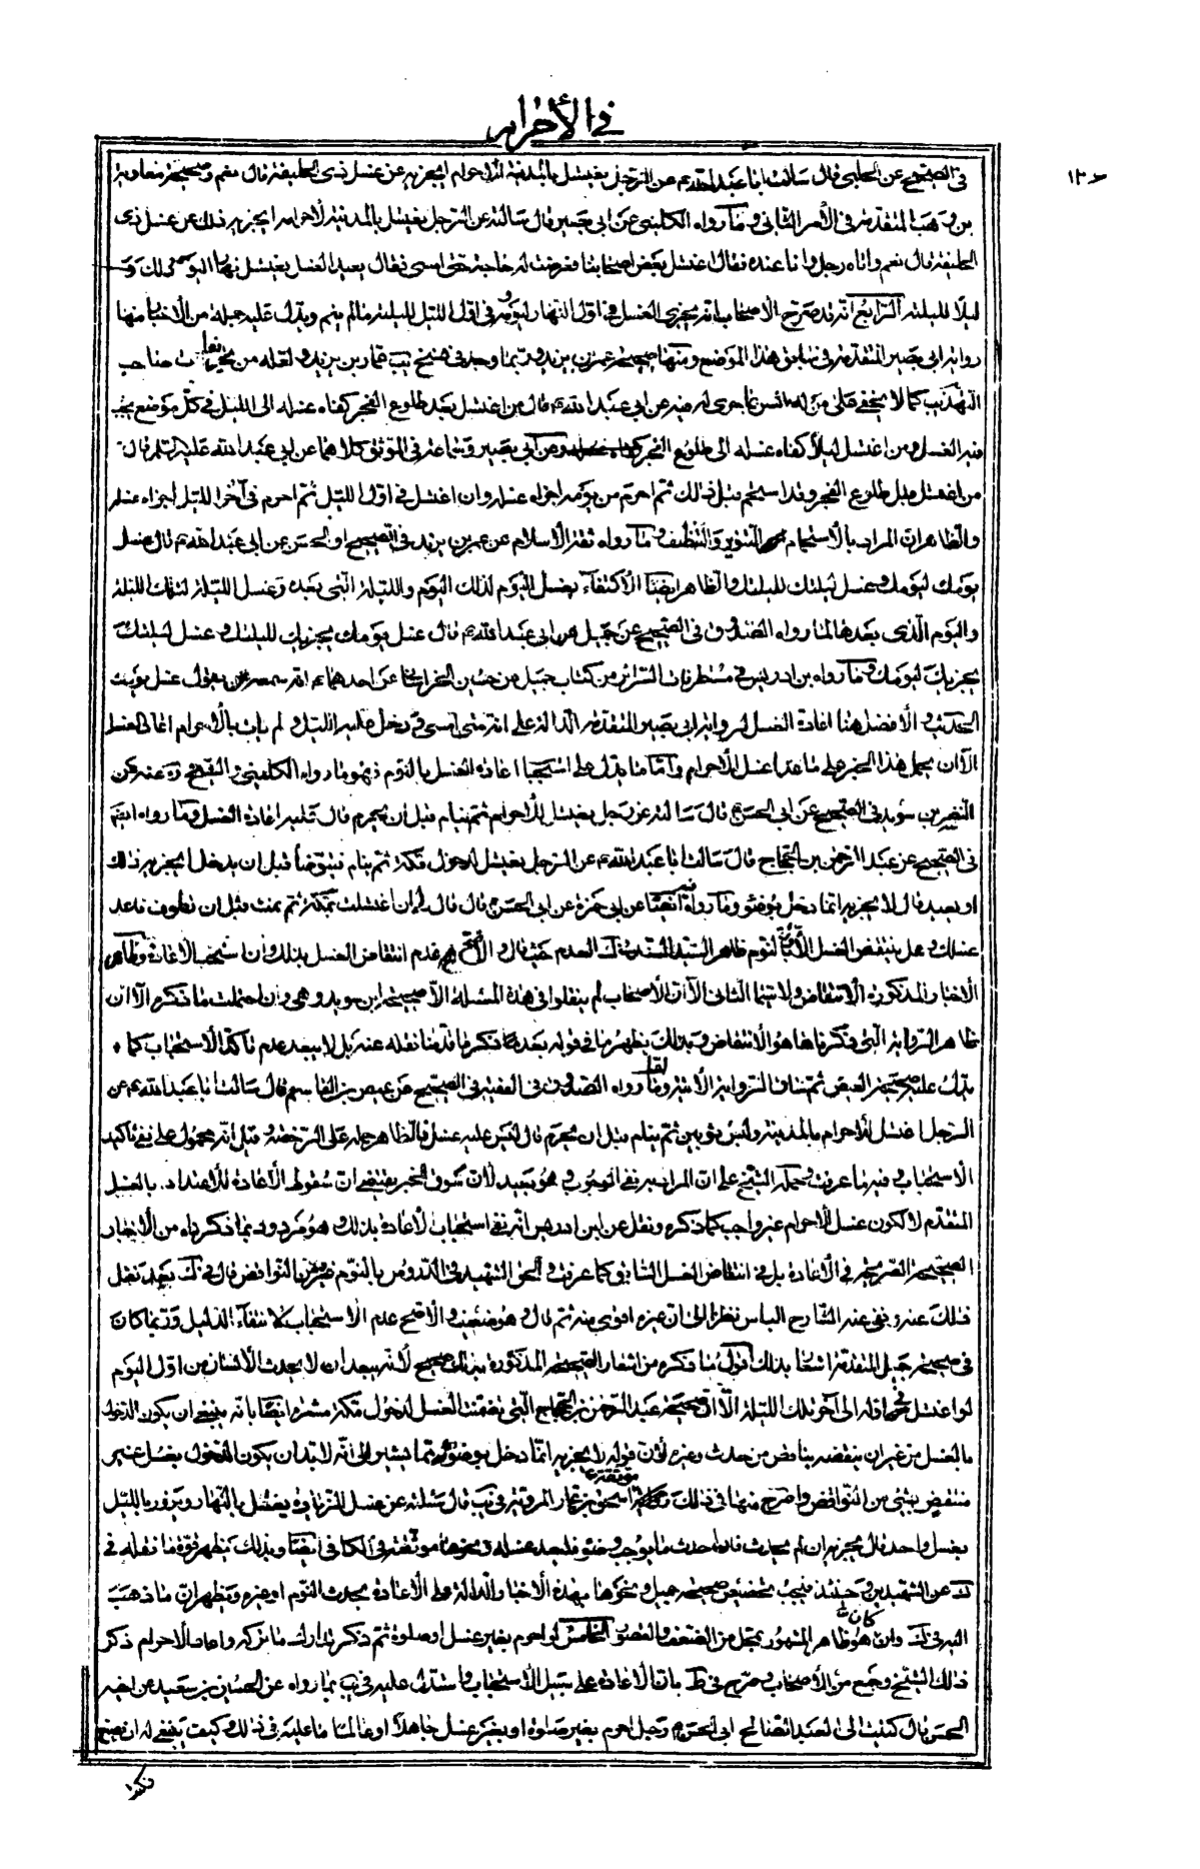 في الأحرام
١٣٠
في الصحيح عن الحلبي قال سالت ابا عبد الله ع عن الرجل يغتسل بالمدينة للاحرام ايجزيه عن غسل ذى الحليفة قال نعم وصحيحة معاوية
بن وهب المتقدمة في الأمر الثاني وما رواه الكليني عن ابي بصير قال سالته عن الرجل يغتسل بالمدينة لاحرامه ايجزيه ذلك عن غسل ذى
الحليفة قال نعم واتاه رجل وانا عنده فقال اغتسل بعض اصحابنا فعرضت له حاجة حتى امسى فقال يعيد الغسل يغتسل نهارا ليومه ذلك و
ليلا لليلته الرابع انه قد صرح الاصحاب بانه يجزى الغسل في اول النهار ليومه وفي اول الليل لليلته ما لم ينم ويدل عليه جملة من الاخبار منها
رواية ابي بصير المتقدمة في سابق هذا الموضع ومنها صحيحة عمر بن يزيد وربما وجد في نسخ يب عمار بن يزيد ولعله من صاحب
التهذيب كما لا يخفى على من له انس بما جرى له فيه عن ابي عبد الله ع قال من اغتسل بعد طلوع الفجر كفاه غسله الى الليل في كل موضع يجب
فيه الغسل ومن اغتسل ليلا كفاه غسله الى طلوع الفجر وعن ابي بصير وسماعة في الموثق كلاهما عن ابي عبد الله عليه السلم قال
من اغتسل قبل طلوع الفجر وقد استحم قبل ذلك ثم احرم من يومه اجزاه غسله وان اغتسل في اول الليل ثم احرم في آخر الليل اجزاه غسله
والظاهر ان المراد بالاستحمام التنوير والتنظيف وما رواه ثقة الاسلام عن عمر بن يزيد في الصحيح او الحسن عن ابي عبد الله ع قال غسل
يومك ليومك وغسل ليلتك لليلتك والظاهر ايضا الاكتفاء بغسل اليوم لذلك اليوم والليلة التي بعده وغسل الليلة لتلك الليلة
واليوم الذى بعدها لما رواه الصدوق في الصحيح عن جميل عن ابي عبد الله ع قال غسل يومك يجزيك لليلتك وغسل ليلتك
يجزيك ليومك وما رواه بن ادريس في مستطرفات السرائر من كتاب جميل عن حسين الخراساني عن احدهما ع انه سمعه يقول غسل يومك
الحديث والافضل هنا اعادة الغسل لرواية ابي بصير المتقدمة الدالة على انه متى امسى ودخل عليه الليل ولم يات بالاحرام اعاد الغسل
الا ان يحمل هذا الخبر على ما عدا غسل الاحرام واما ما يدل على استحباب اعادة الغسل بالنوم فهو ما رواه الكليني والشيخ ره عنه عن
النضر بن سويد في الصحيح عن ابي الحسن ع قال سالته عن رجل يغتسل للاحرام ثم ينام قبل ان يحرم قال عليه اعادة الغسل وما رواه ايضا
في الصحيح عن عبد الرحمن بن الحجاج قال سالت ابا عبد الله ع عن الرجل يغتسل لدخول مكة ثم ينام فيتوضأ قبل ان يدخل ايجزيه ذلك
او يعيد قال لا يجزيه انما دخل بوضوء وما رواه ايضا عن ابي حمزة عن ابي الحسن ع قال قال لي ان اغتسلت بمكة ثم نمت قبل ان تطوف فاعد
غسلك وهل ينتقض الغسل بالنوم ظاهر السيد السند في ك العدم حيث قال والاصح عدم انتقاض الغسل بذلك وان استحب الاعادة وظاهر
الاخبار المذكورة الانتقاض ولا سيما الثاني الا ان الاصحاب لم ينقلوا في هذه المسئلة الا صحيحة ابن سويد وهي وان احتملت ما ذكره الا ان
ظاهر الروايات التي ذكرناها هو الانتقاض وبذلك يظهر ما في قوله بعد ذكر ما قدمنا نقله عنه بل لا يبعد عدم تاكد الاستحباب كما
يدل عليه صحيحة العيص ثم ساق الرواية الاتية وما رواه الصدوق في الفقيه في الصحيح عن عيص بن القاسم قال سالت ابا عبد الله ع عن
الرجل اغتسل للاحرام بالمدينة ولبس ثوبين ثم ينام قبل ان يحرم قال ليس عليه غسل فالظاهر حمله على الرخصة وقيل انه محمول على نفي تاكيد
الاستحباب وفيه ما عرفت وحمله الشيخ على ان المراد به نفي الوجوب وهو بعيد لان سوق الخبر يقتضي ان سقوط الاعادة للاعتداد بالغسل
المتقدم لا لكون غسل الاحرام غير واجب كما ذكره ونقل عن ابن ادريس انه نفى استحباب الاعادة بذلك وهو مردود بما ذكرناه من الاخبار
الصحيحة الصريحة في الاعادة بل في انتقاض الغسل السابق كما عرفت والحق الشهيد في الدروس بالنوم غيره من النواقض قال في ك بعد نقل
ذلك عنه ونفى عنه الشارح الباس نظرا الى ان غيره اقوى منه ثم قال وهو ضعيف والاصح عدم الاستحباب لانتفاء الدليل وربما كان
في صحيحة جميل المتقدمة اشعار بذلك اقول ما ذكره من اشعار الصحيحة المذكورة بذلك صحيح لانه يبعد ان لا يحدث الانسان من اول اليوم
لو اغتسل اوله الى آخر تلك الليلة الا ان صحيحة عبد الرحمن بن الحجاج التي تضمنت الغسل لدخول مكة مشعرة ايضا بانه ينبغي ان يكون الدخول
بالغسل من غير ان ينقضه بناقض من حدث وغيره لان قوله لا يجزيه انما دخل بوضوء مما يشير الى انه لا بد ان يكون الدخول بغسل غير
منتقض بشئ من النواقض واصرح منها في ذلك موثقة اسحق بن عمار المروية في يب قال سئلته عن غسل الزيارة يغتسل بالنهار ويزور بالليل
بغسل واحد قال يجزيه ان لم يحدث فان احدث ما يوجب وضوء فليعد غسله ونحوها موثقته في الكافي ايضا وبذلك يظهر قوة ما نقله في
ك عن الشهيدين وحينئذ فيجب تخصيص صحيحة جميل ونحوها بهذه الاخبار الدالة على الاعادة بحدث النوم او غيره ويظهر ان ما ذهب
اليه في ك وان كان هو ظاهر المشهور بمحل من الضعف والقصور الخامس لو احرم بغير غسل او صلوة ثم ذكر تدارك ما تركه واعاد الاحرام ذكر
ذلك الشيخ وجمع من الاصحاب وصرح في ط بان الاعادة على سبيل الاستحباب واستدل عليه في يب بما رواه عن الحسين بن سعيد عن اخيه
الحسن قال كتبت الى العبد الصالح ابي الحسن ع رجل احرم بغير صلوة او بغير غسل جاهلا او عالما ما عليه في ذلك وكيف ينبغي له ان يصنع
فكتب